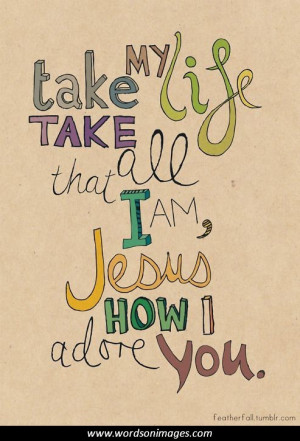 take MY life
TAKE all
that
I AM,
Jesus
HOW I
adore YOU.
featherfall.tumblr.com
www.wordsonimages.com